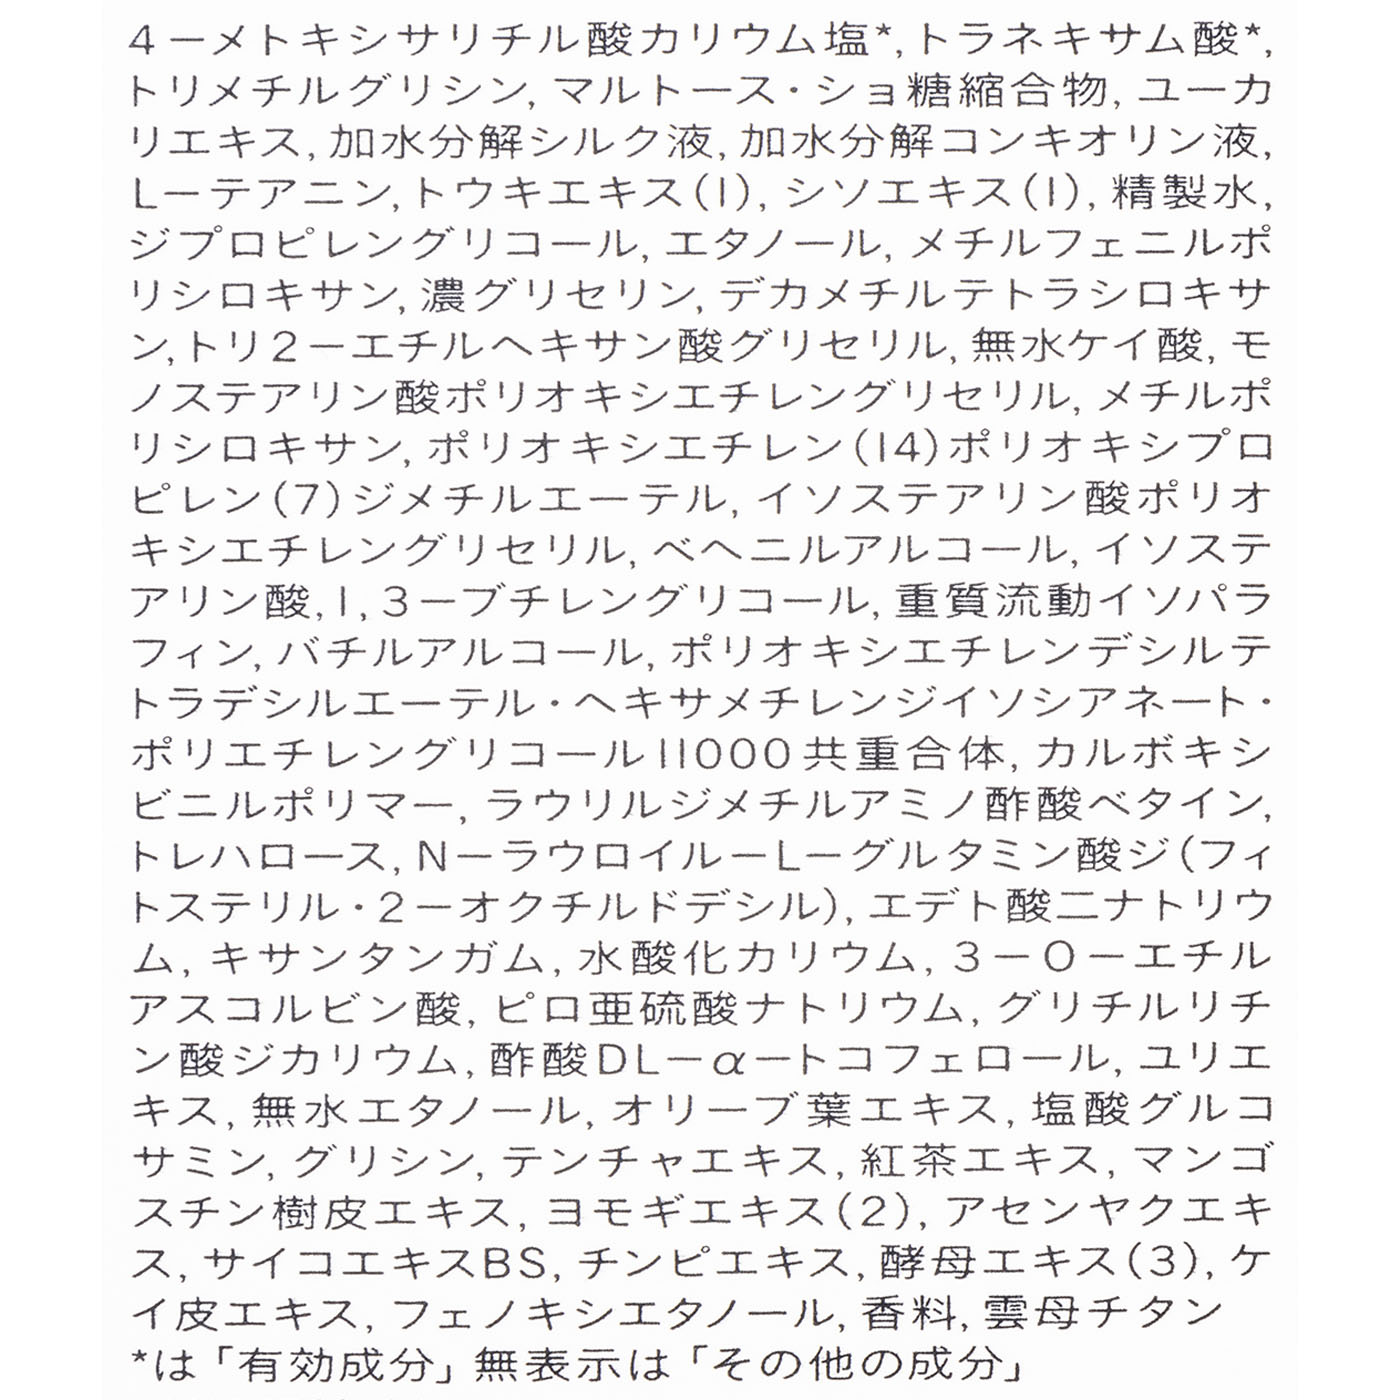 4－メトキシサリチル酸カリウム塩*, トラネキサム酸*,
トリメチルグリシン, マルトース・ショ糖縮合物, ユーカ
リエキス, 加水分解シルク液, 加水分解コンキオリン液,
L－テアニン, トウキエキス(1), シソエキス(1), 精製水,
ジプロピレングリコール, エタノール, メチルフェニルポ
リシロキサン, 濃グリセリン, デカメチルテトラシロキサ
ン, トリ2－エチルヘキサン酸グリセリル, 無水ケイ酸, モ
ノステアリン酸ポリオキシエチレングリセリル, メチルポ
リシロキサン, ポリオキシエチレン(14)ポリオキシプロ
ピレン(7)ジメチルエーテル, イソステアリン酸ポリオ
キシエチレングリセリル, ベヘニルアルコール, イソステ
アリン酸, 1,3－ブチレングリコール, 重質流動イソパラ
フィン, バチルアルコール, ポリオキシエチレンデシルテ
トラデシルエーテル・ヘキサメチレンジイソシアネート・
ポリエチレングリコール11000共重合体, カルボキシ
ビニルポリマー, ラウリルジメチルアミノ酢酸ベタイン,
トレハロース, N－ラウロイル－L－グルタミン酸ジ(フィ
トステリル・2－オクチルドデシル), エデト酸二ナトリウ
ム, キサンタンガム, 水酸化カリウム, 3－O－エチル
アスコルビン酸, ピロ亜硫酸ナトリウム, グリチルリチ
ン酸ジカリウム, 酢酸DL－α－トコフェロール, ユリエ
キス, 無水エタノール, オリーブ葉エキス, 塩酸グルコ
サミン, グリシン, テンチャエキス, 紅茶エキス, マンゴ
スチン樹皮エキス, ヨモギエキス(2), アセンヤクエキ
ス, サイコエキスBS, チンピエキス, 酵母エキス(3), ケ
イ皮エキス, フェノキシエタノール, 香料, 雲母チタン
*は「有効成分」無表示は「その他の成分」